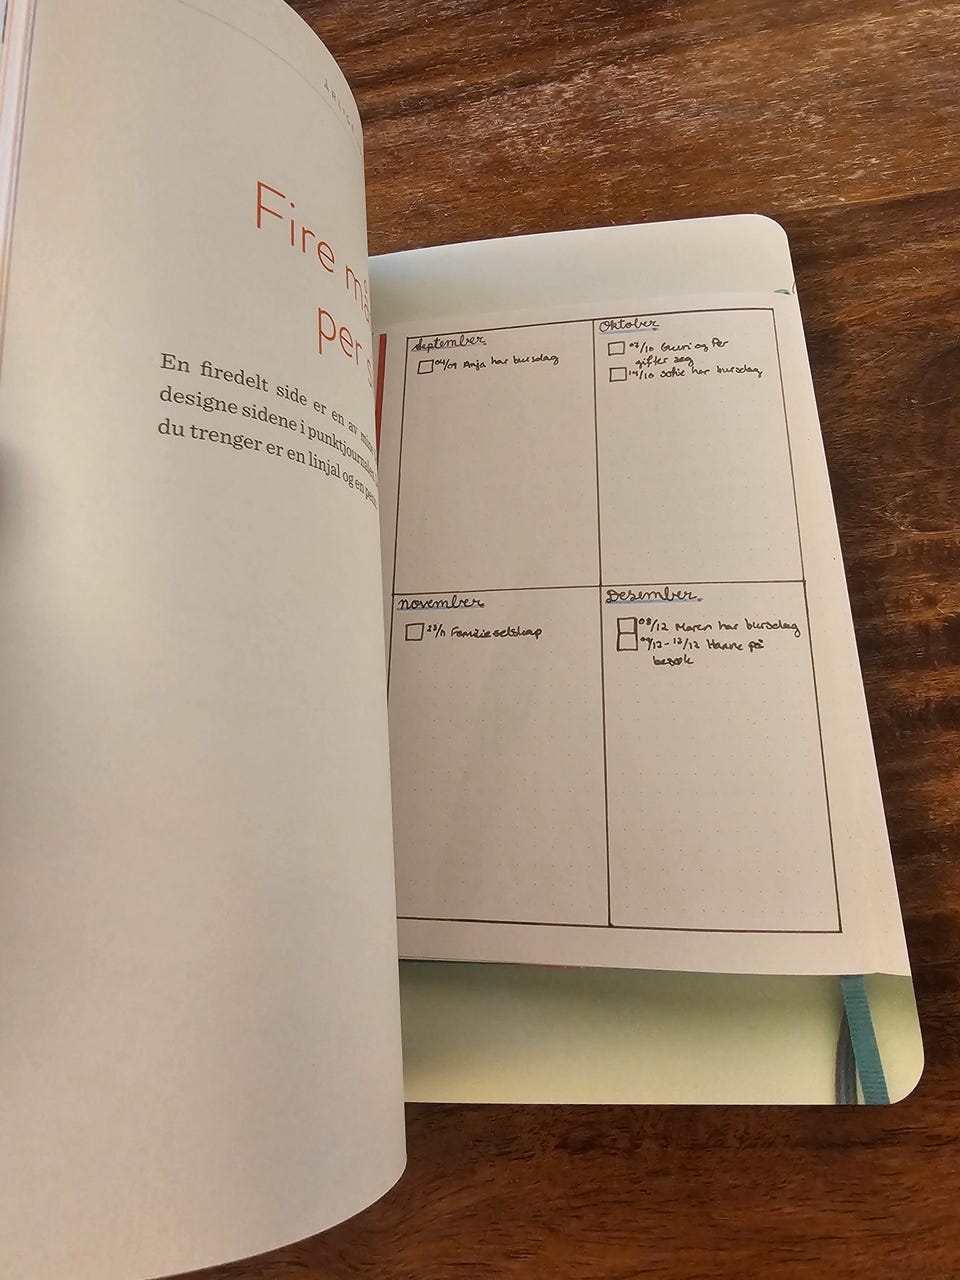 ÅRLIGE
Fire må
per s
En firedelt side er en av mine
designe sidene i punktjournalen
du trenger er en linjal og en penn
September
04/09 Anja har bursdag
Oktober
07/10 Guri og Per
gifter seg
14/10 Sofie har bursdag
November
23/11 Familieselskap
Desember
08/12 Maren har bursdag
09/12 - 12/12 Hanne på
besøk